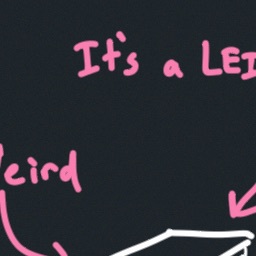 It's a LEI
eird